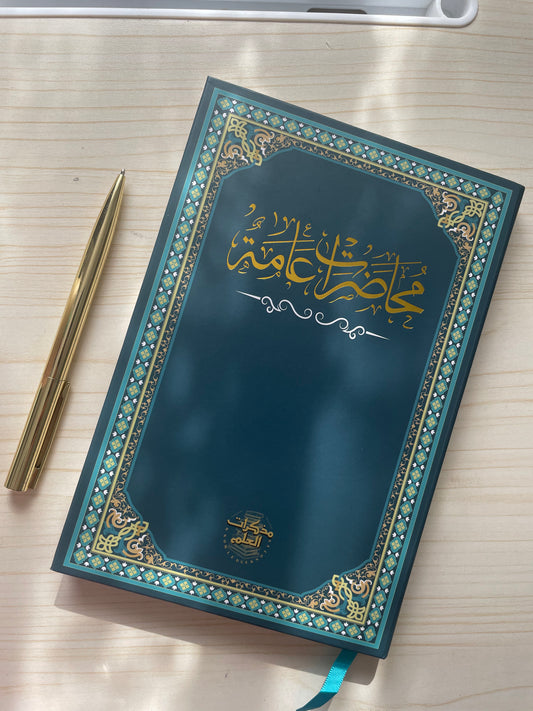 محاضرات عامة
مذكرات
العلم